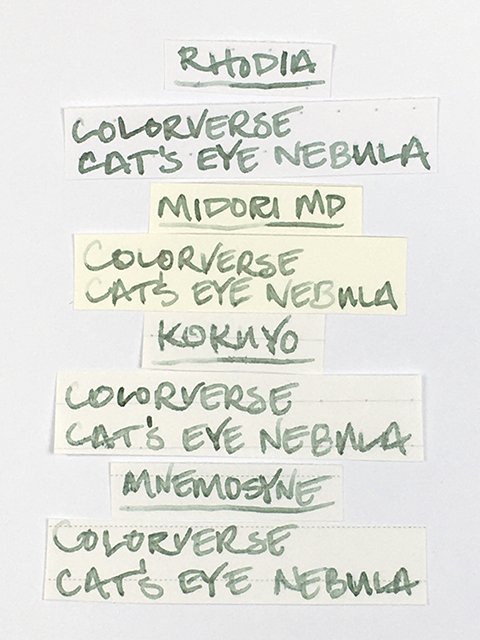 RHODIA
COLORVERSE
CAT'S EYE NEBULA
MIDORI MD
COLORVERSE
CAT'S EYE NEBULA
KOKUYO
COLORVERSE
CAT'S EYE NEBULA
MNEMOSYNE
COLORVERSE
CAT'S EYE NEBULA